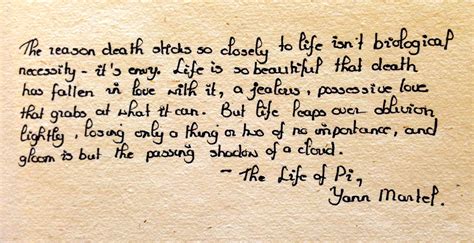 The reason death sticks so closely to life isn't biological
necessity - it's envy. Life is so beautiful that death
has fallen in love with it, a jealous, possessive love
that grabs at what it can. But life leaps over oblivion
lightly, losing only a thing or two of no importance, and
gloom is but the passing shadow of a cloud.
- The Life of Pi,
Yann Martel.